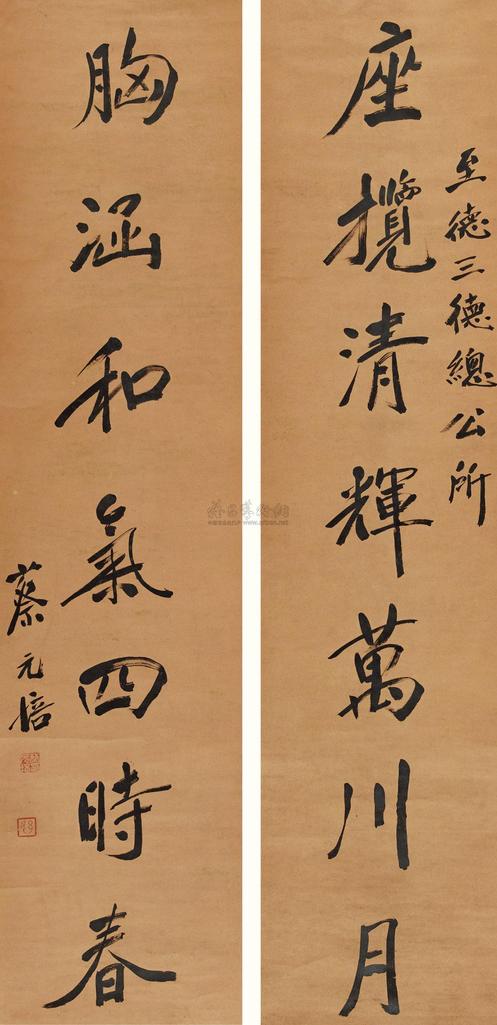 至德三德總公所
座攬清輝萬川月
胸涵和氣四時春
蔡元培